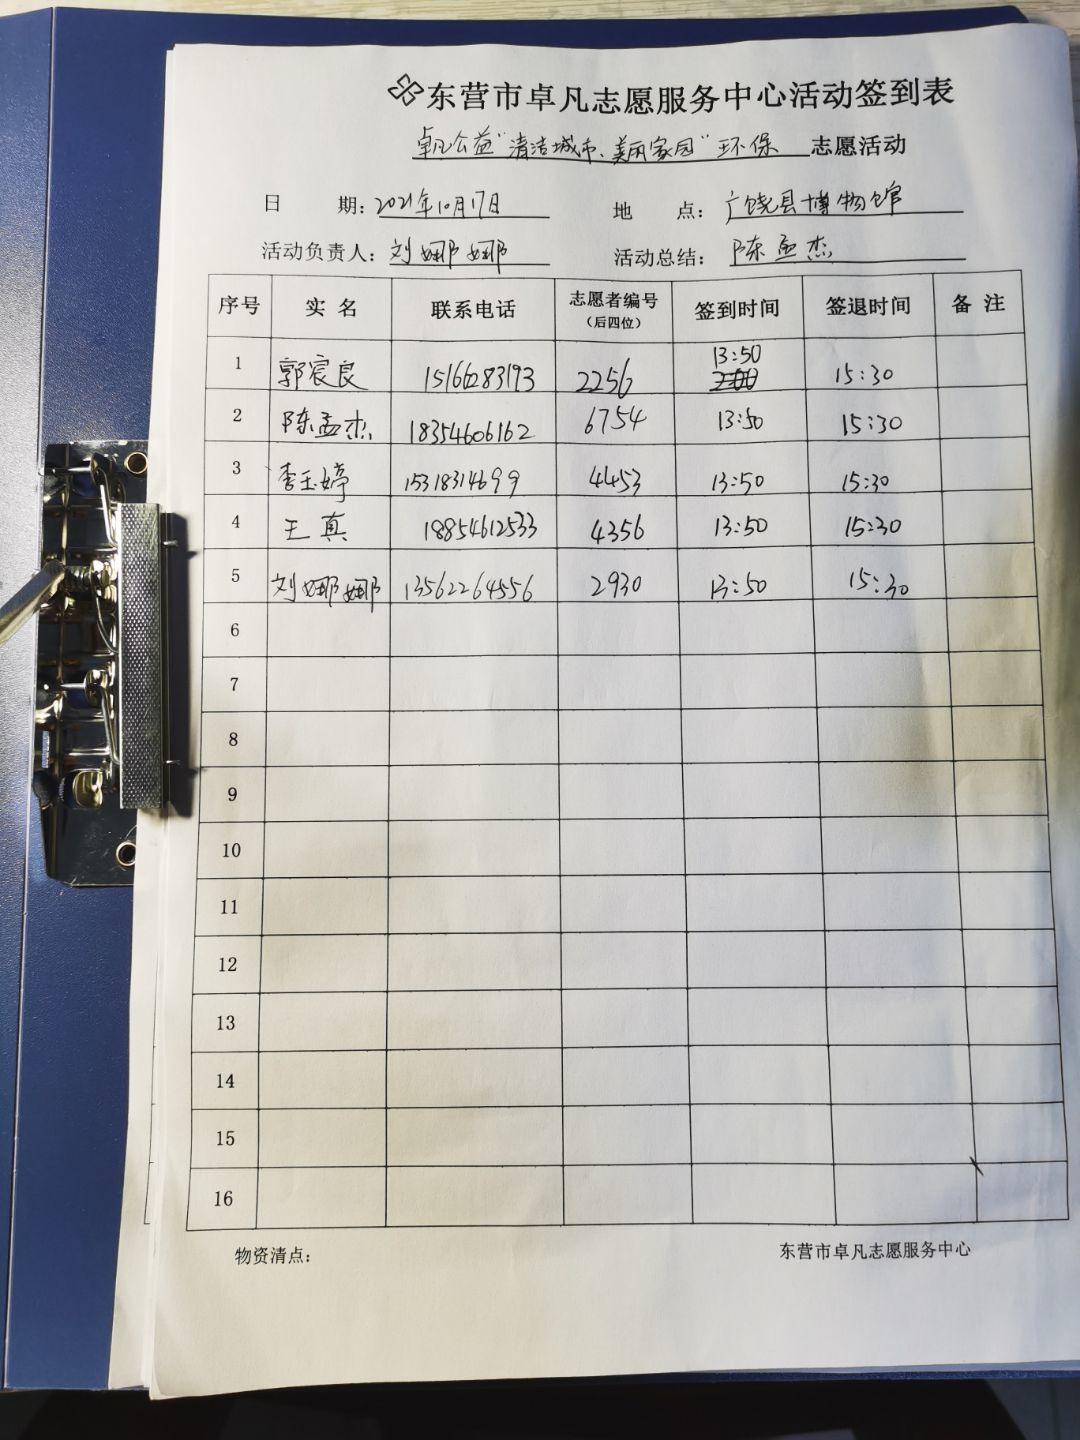 东营市卓凡志愿服务中心活动签到表
卓凡公益"清洁城市、美丽家园"环保 志愿活动
日 期：2021年10月17日 地 点：广饶县博物馆
活动负责人：刘娜娜 活动总结：陈孟杰
序号 实名 联系电话 志愿者编号（后四位） 签到时间 签退时间 备注
1 郭宸良 15166283193 2256 13:50 15:30
2 陈孟杰 18354606162 6754 13:50 15:30
3 李玉婷 15318314699 4453 13:50 15:30
4 王真 18854612533 4356 13:50 15:30
5 刘娜娜 13562264556 2930 13:50 15:30
6
7
8
9
10
11
12
13
14
15
16
物资清点： 东营市卓凡志愿服务中心